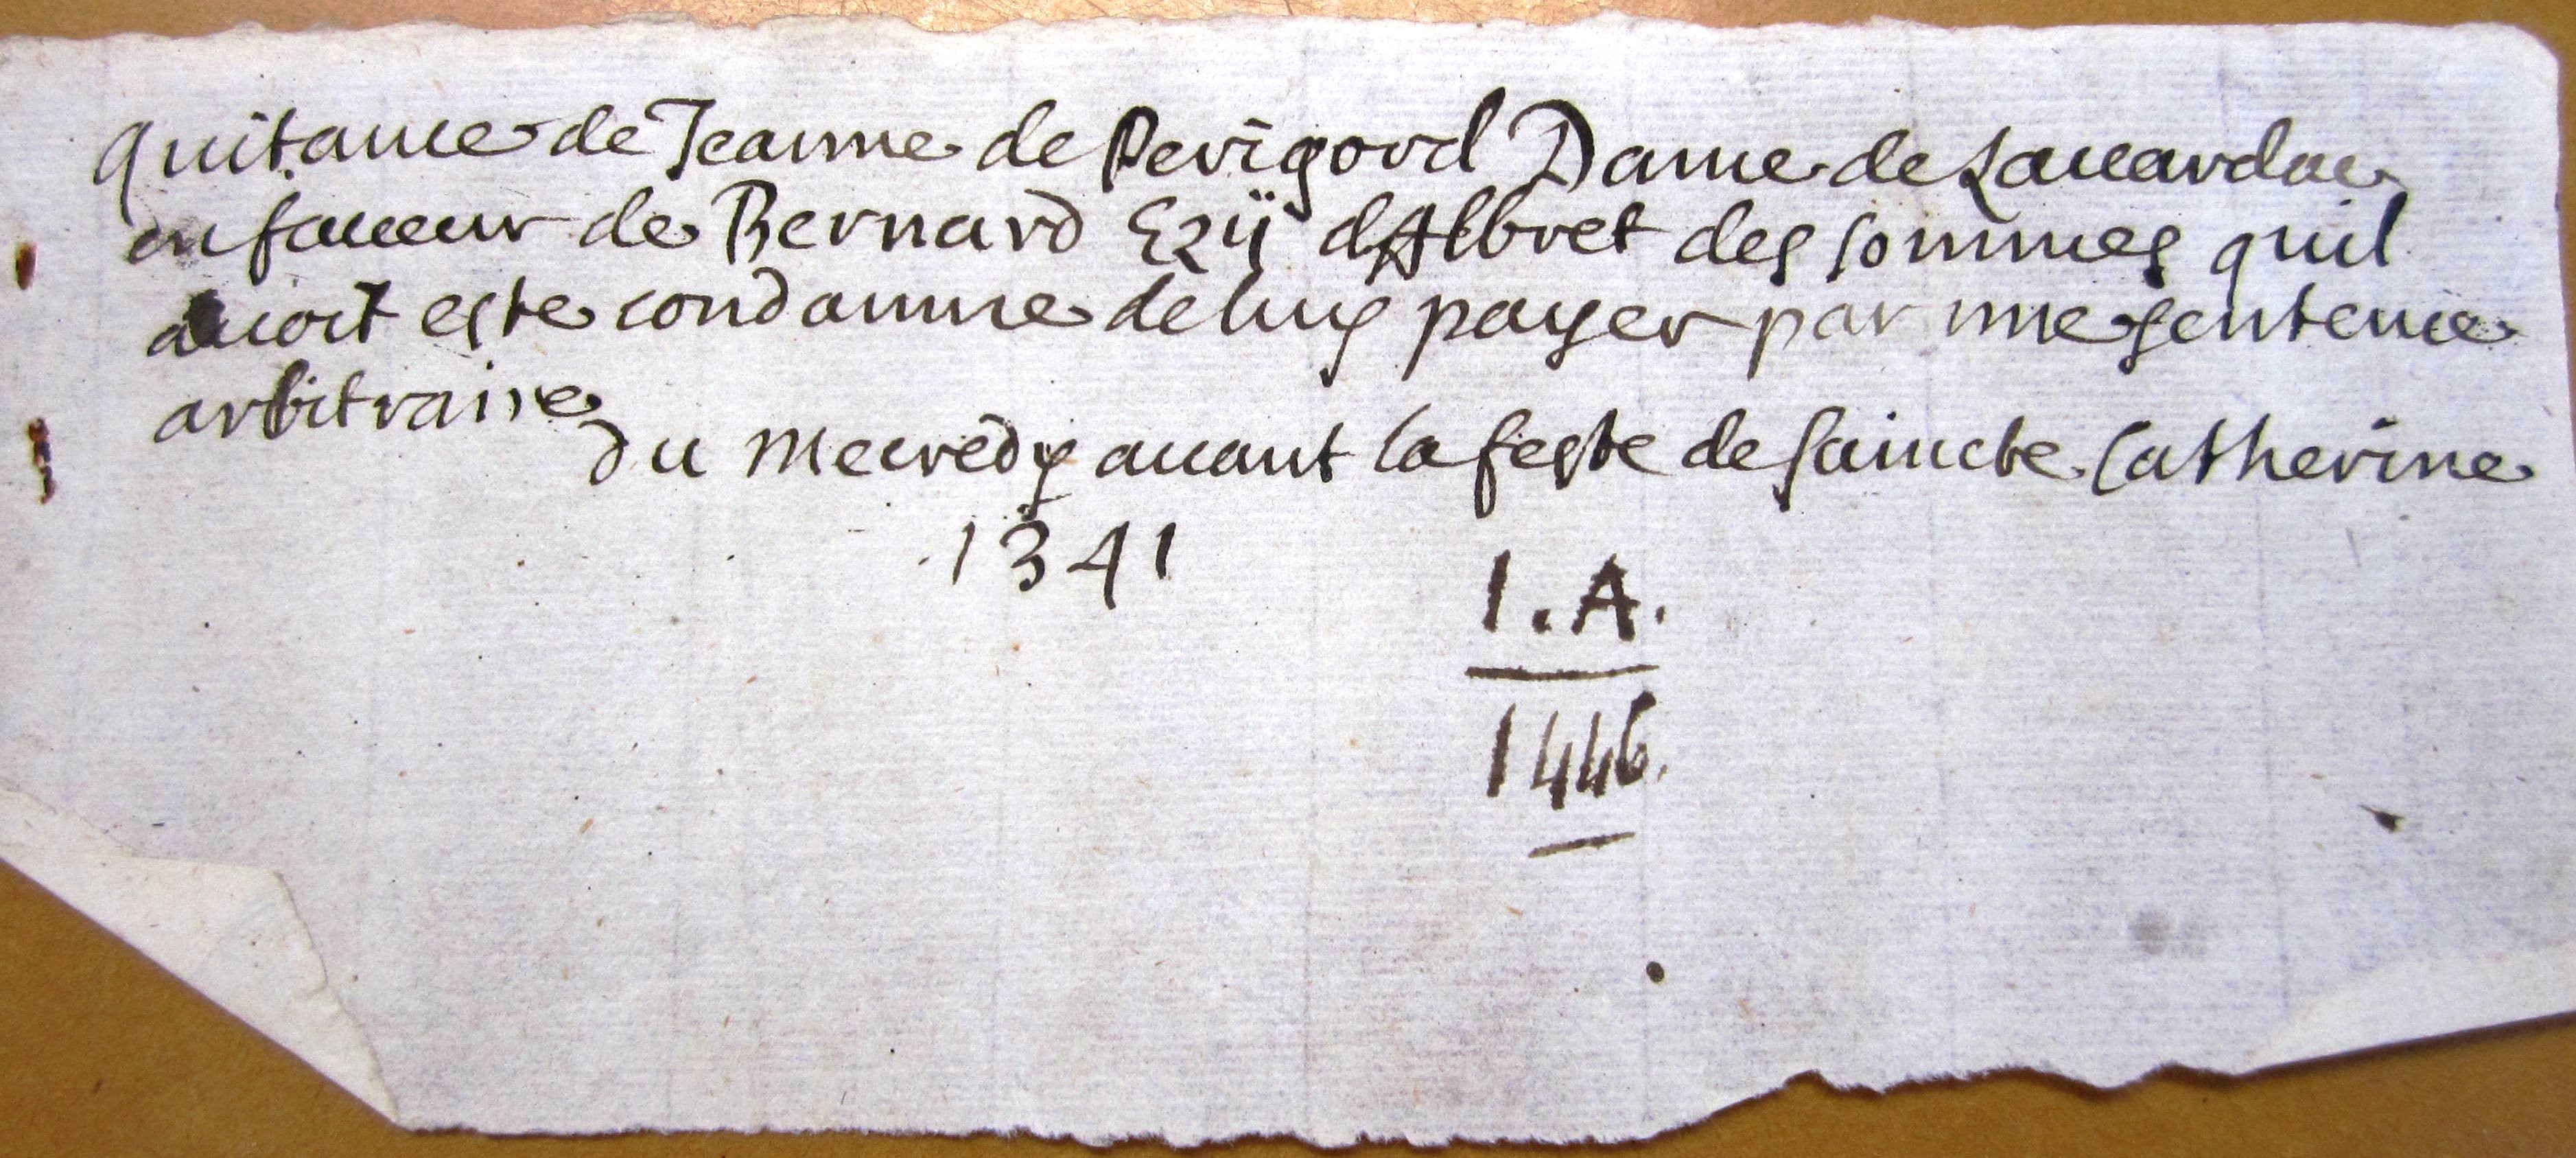 quitance de Jeanne de Perigord Dame de Lauardac
en faueur de Bernard Ezÿ dAlbret des sommes quil
auoit este condamne de luy payer par une sentence
arbitraire
du Mecredy auant la feste de saincte Catherine
1341
I.A.
1446.